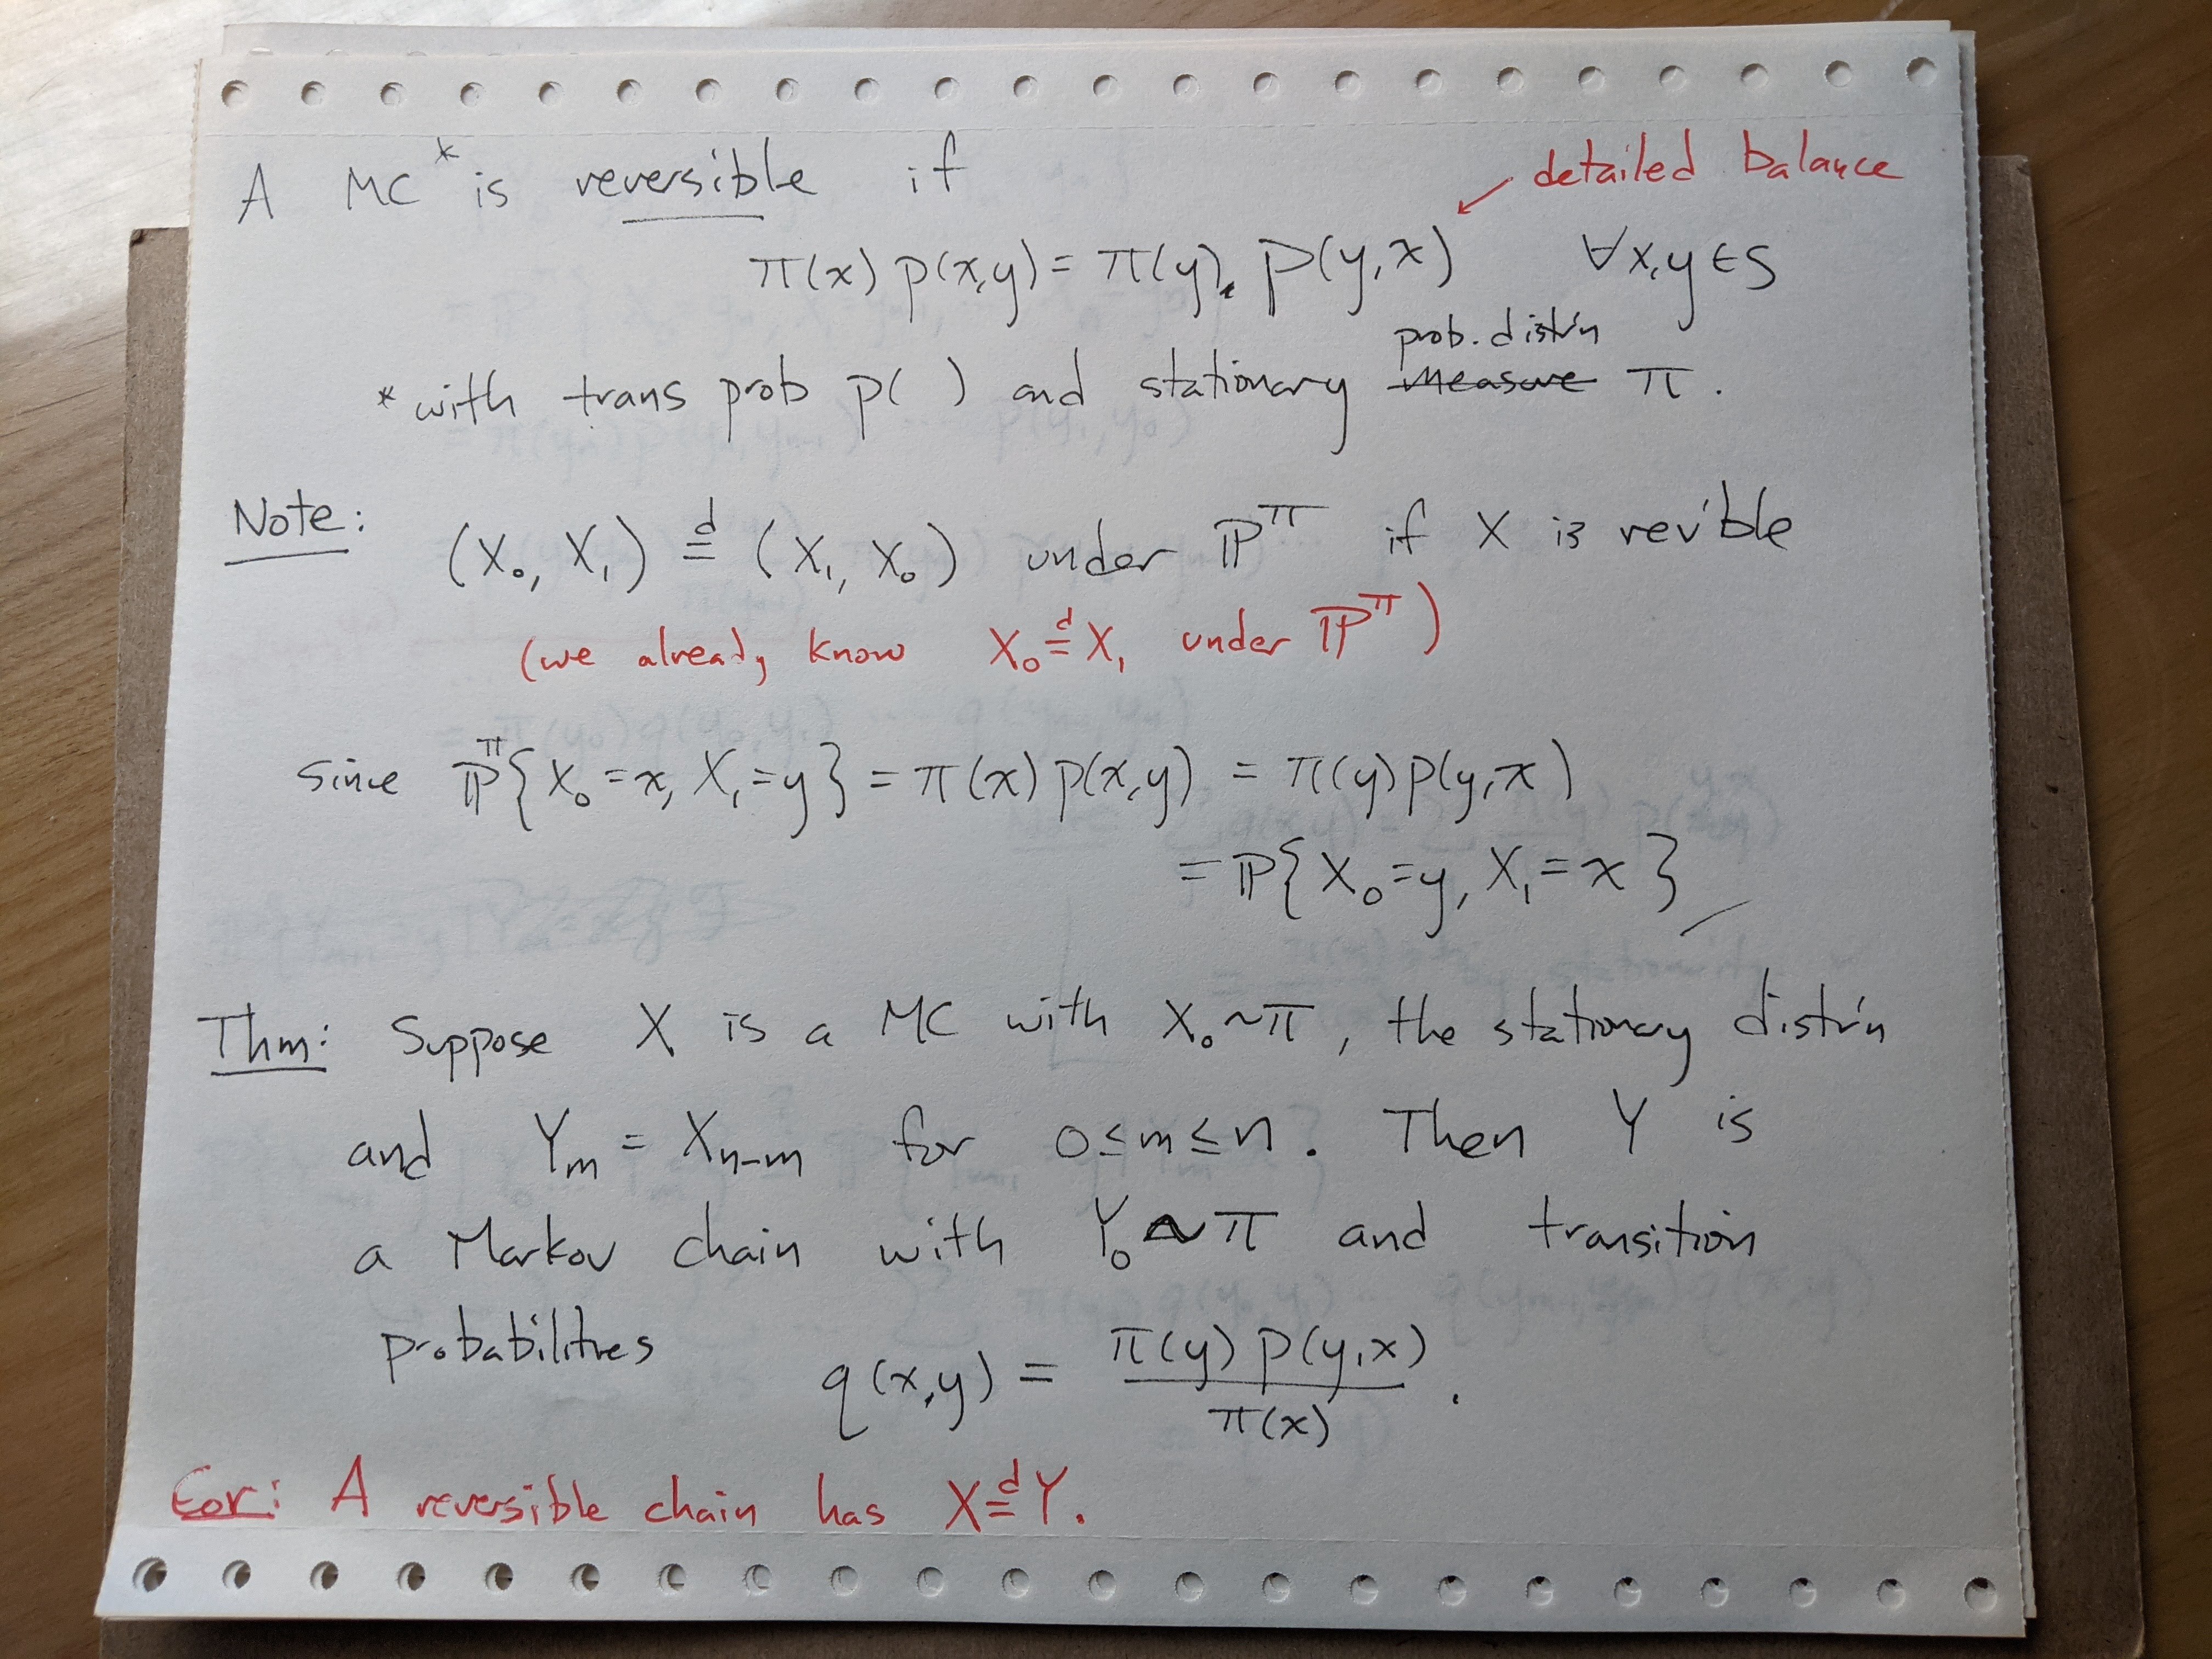 A MC* is reversible if
detailed balance
π(x) p(x,y) = π(y) p(y,x) ∀x,y ∈ S
prob. distr'n
*with trans prob p( ) and stationary ~~measure~~ π.
Note: (X₀, X₁) =ᵈ (X₁, X₀) under ℙ^π if X is rev'ble
(we already know X₀ =ᵈ X₁ under ℙ^π)
since ℙ^π{X₀=x, X₁=y} = π(x)p(x,y) = π(y)p(y,x)
= ℙ{X₀=y, X₁=x}
Thm: Suppose X is a MC with X₀~π, the stationary distr'n
and Yₘ = Xₙ₋ₘ for 0≤m≤n. Then Y is
a Markov chain with Y₀~π and transition
probabilities q(x,y) = π(y) p(y,x) / π(x).
Cor: A reversible chain has X =ᵈ Y.